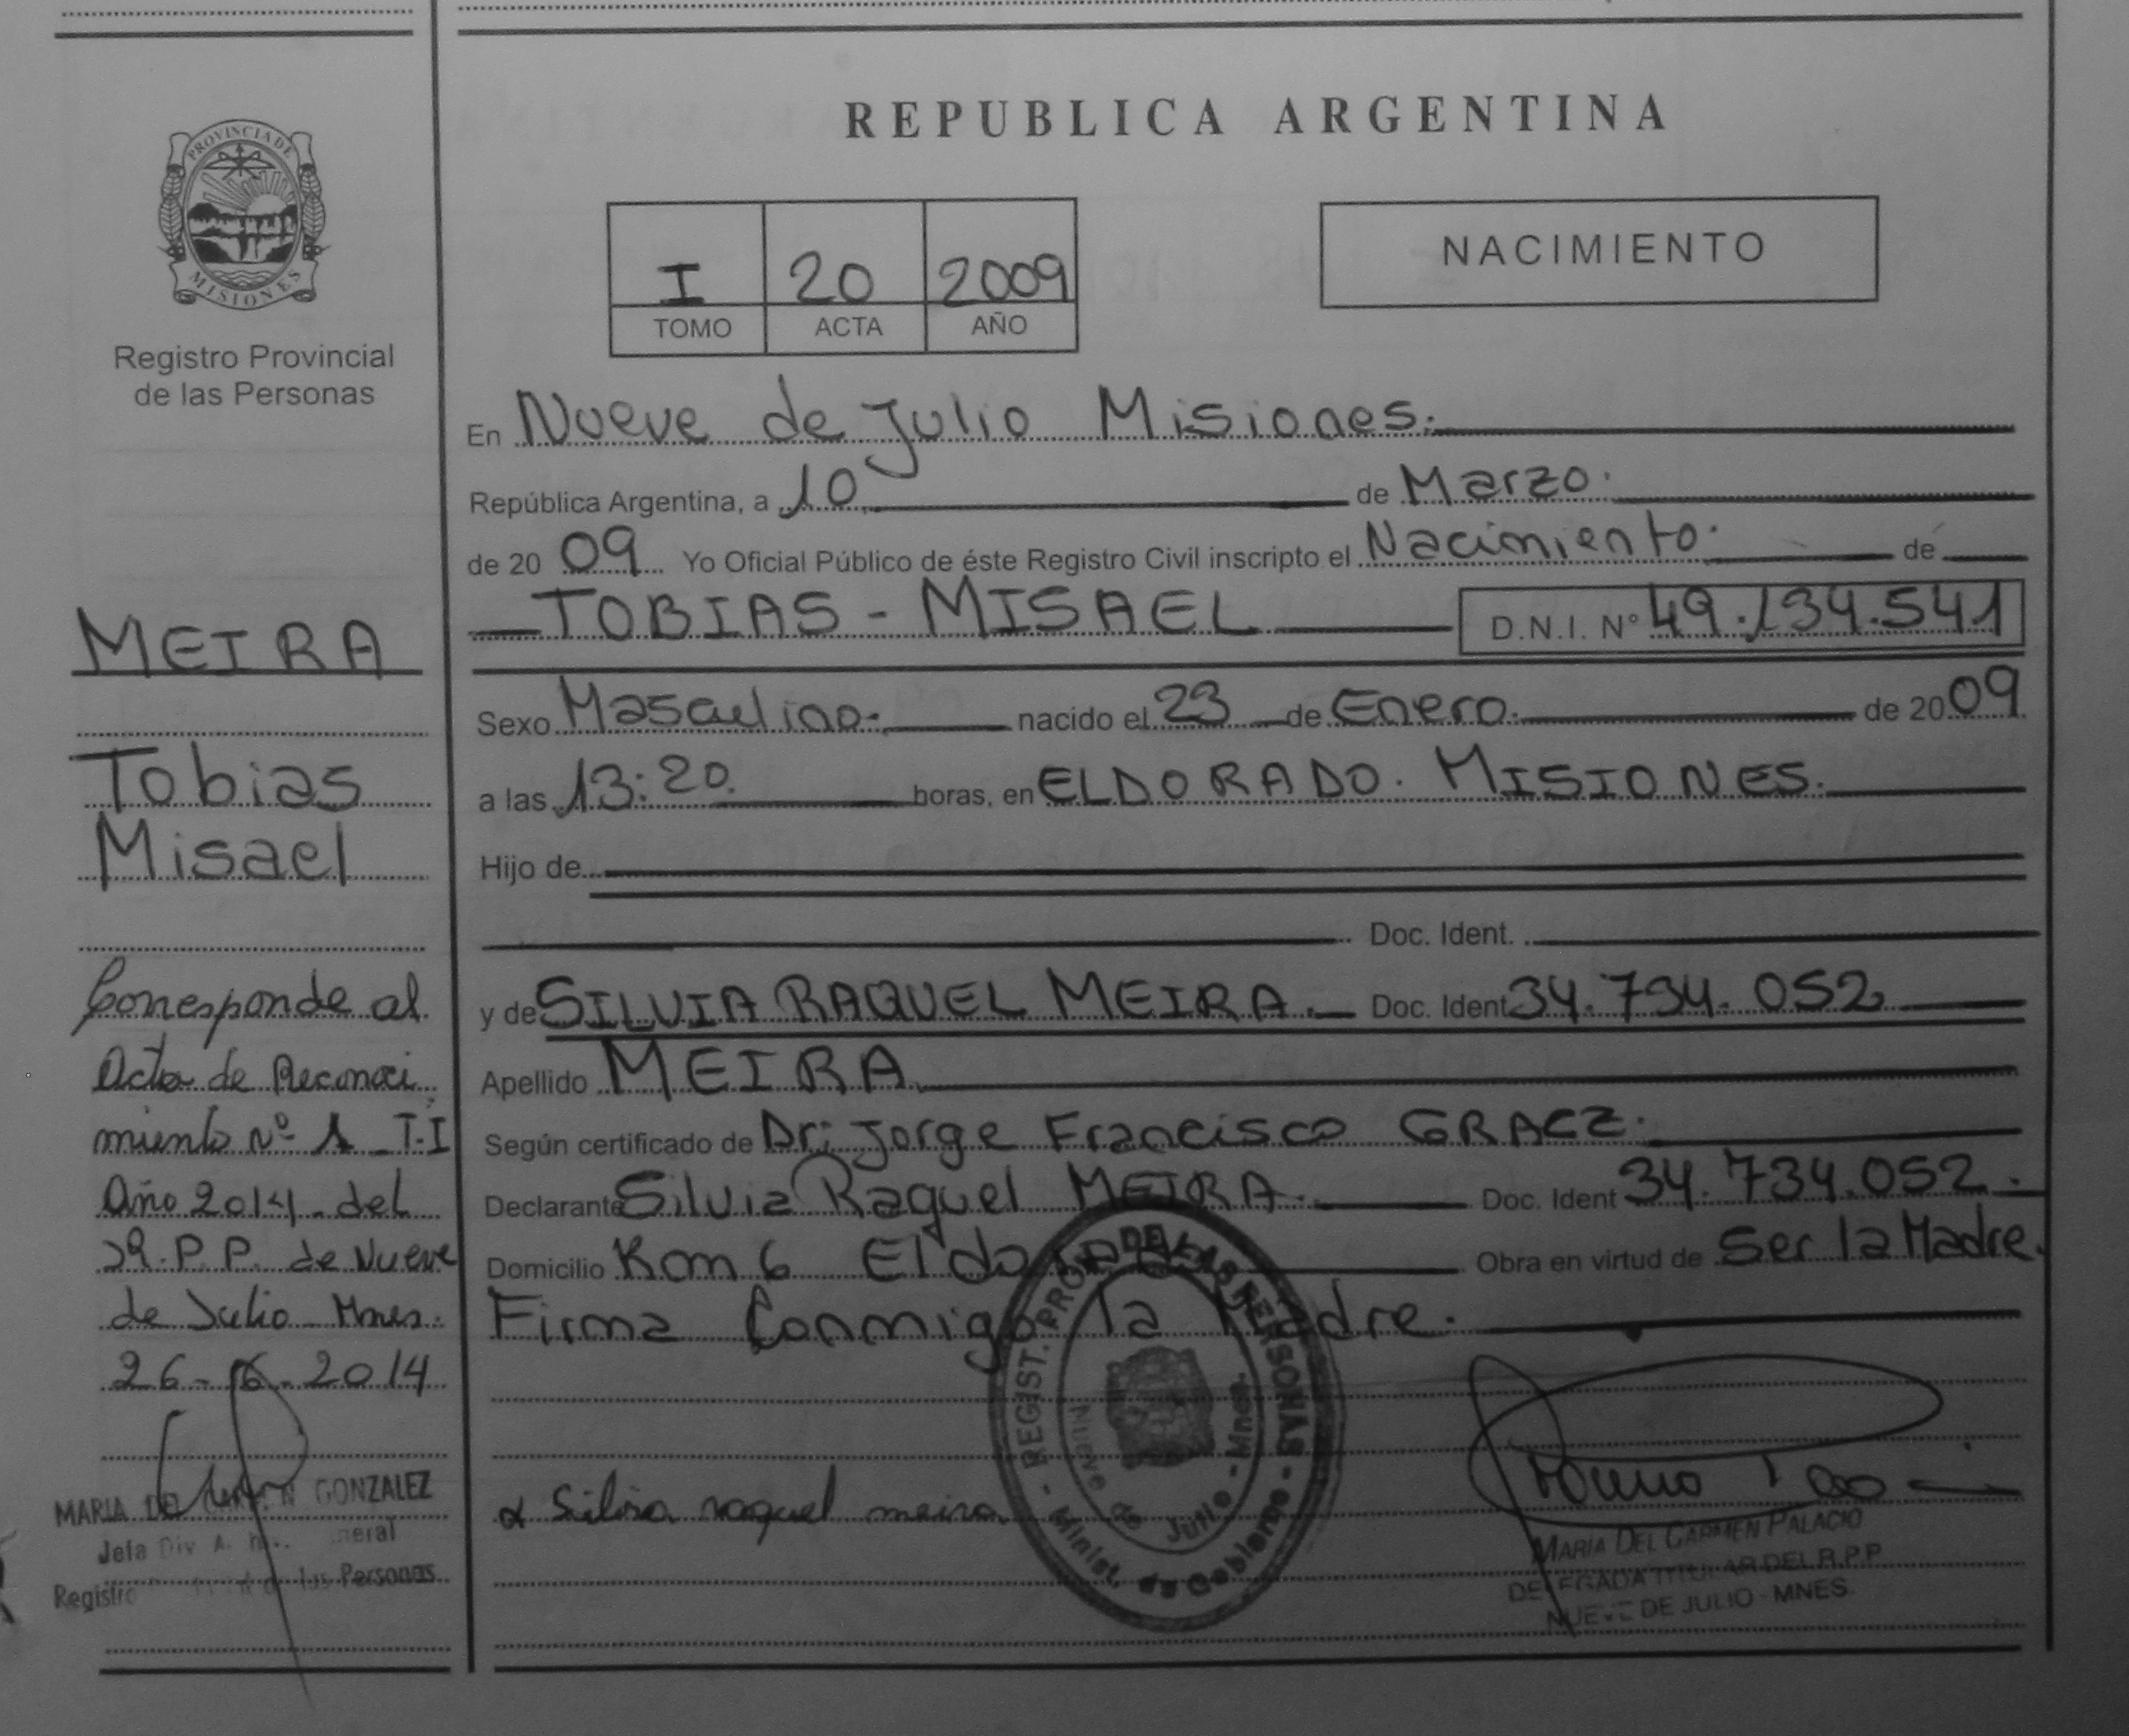 PROVINCIA DE
MISIONES
Registro Provincial
de las Personas
MEIRA
Tobias
Misael
Corresponde al
Acta de Reconoci
miento Nº 1 _ T-I
Año 2014 _ del
R.P.P. de Nueve
de Julio - Mnes.
26-06-2014
MARIA DEL CARMEN GONZALEZ
Jefa Div A.
Registro de las Personas
REPUBLICA ARGENTINA
I 20 2009
TOMO ACTA AÑO
NACIMIENTO
En Nueve de Julio Misiones.
República Argentina, a 10 de Marzo.
de 20 09 Yo Oficial Público de éste Registro Civil inscripto el Nacimiento. de
TOBIAS - MISAEL D.N.I. Nº 49.134.541
Sexo Masculino. nacido el 23 de Enero. de 20 09
a las 13:20. horas, en ELDORADO. MISIONES.
Hijo de
Doc. Ident.
y de SILVIA RAQUEL MEIRA. Doc. Ident 34.734.052
Apellido MEIRA
Según certificado de Dr: Jorge Francisco GRACZ.
Declarante Silvia Raquel MEIRA. Doc. Ident 34.734.052.
Domicilio Km 6 Eldorado Obra en virtud de Ser la Madre.
Firma Conmigo la Madre.
REGIST. PROV. DE LAS PERSONAS - Minist. de Gobierno -
Nueve de Julio - Mnes.
Silvia raquel meira
MARIA DEL CARMEN PALACIO
DELEGADA TITULAR DEL R.P.P.
NUEVE DE JULIO - MNES.